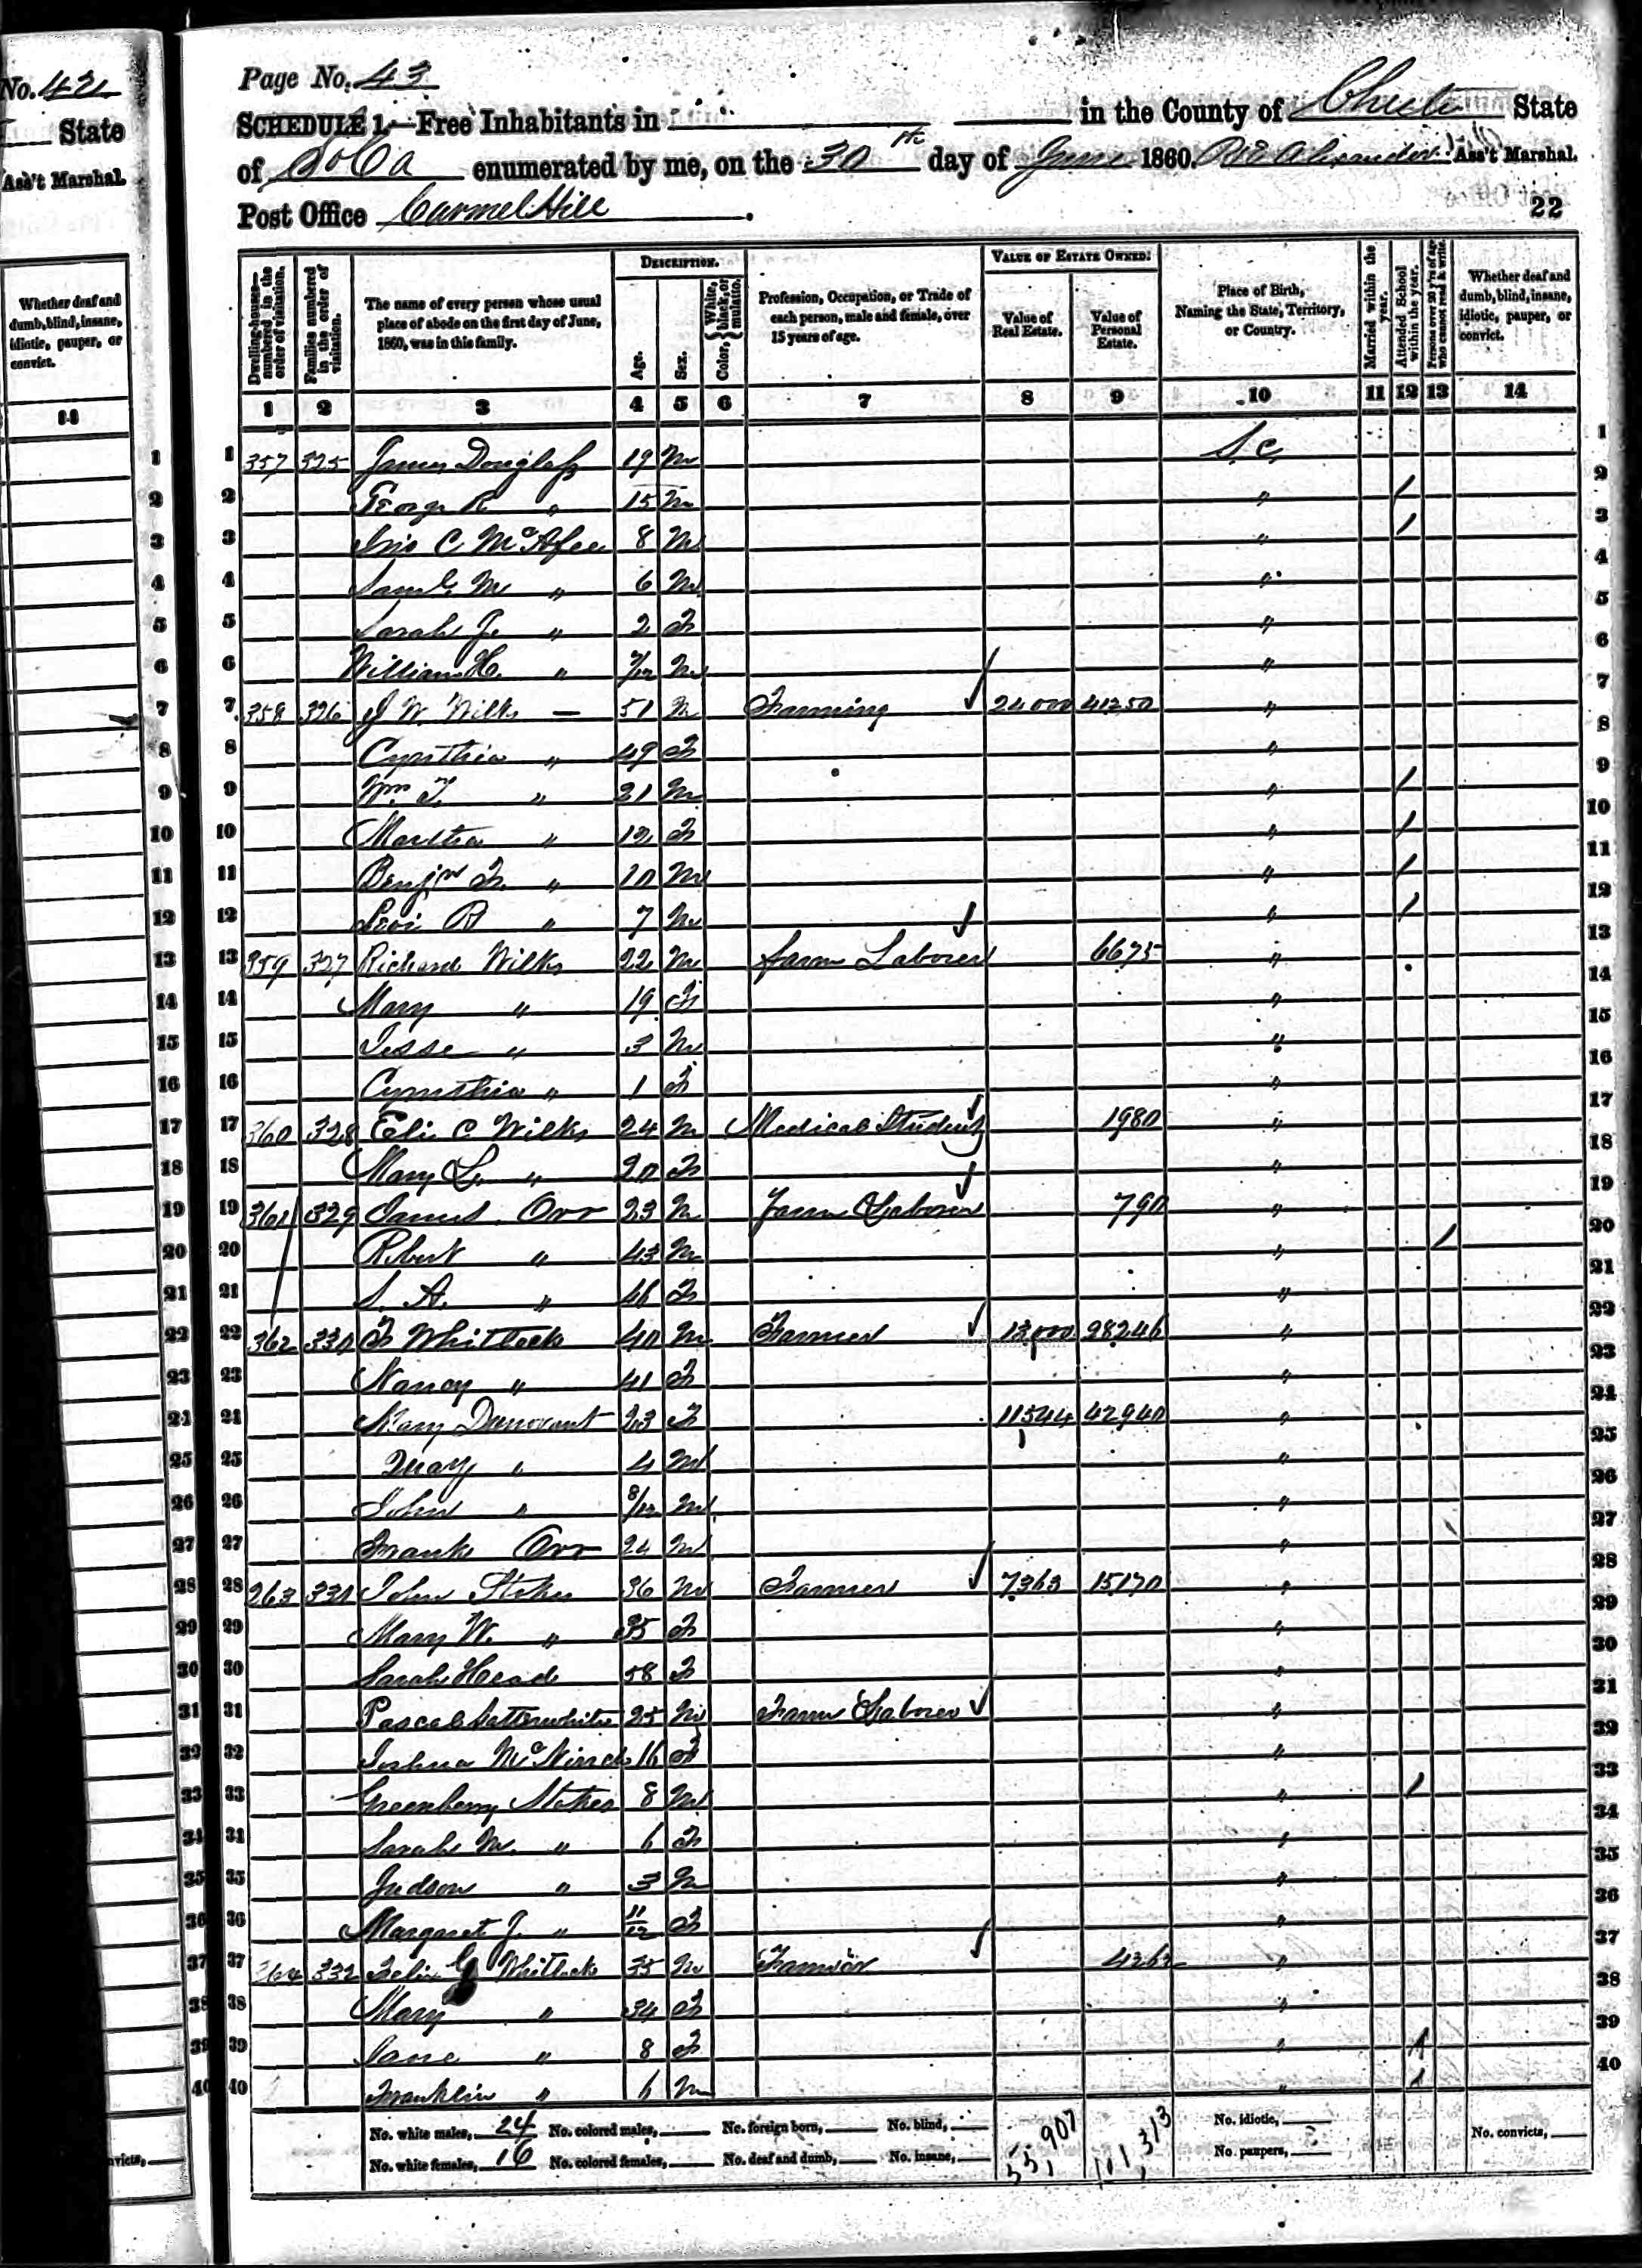 No. 42
State
Ass't Marshal.
Whether deaf and dumb, blind, insane, idiotic, pauper, or convict.
14
Page No. 43
SCHEDULE 1.—Free Inhabitants in in the County of Chester State
of So Ca enumerated by me, on the 30th day of June 1860. Ass't Marshal.
Post Office Carmel Hill.
22
Dwelling-houses—numbered in the order of visitation.
Families numbered in the order of visitation.
The name of every person whose usual place of abode on the first day of June, 1860, was in this family.
DESCRIPTION.
Age.
Sex.
Color, { White, black, or mulatto.
Profession, Occupation, or Trade of each person, male and female, over 15 years of age.
VALUE OF ESTATE OWNED.
Value of Real Estate.
Value of Personal Estate.
Place of Birth, Naming the State, Territory, or Country.
Married within the year.
Attended School within the year.
Persons over 20 y'rs of age who cannot read & write.
Whether deaf and dumb, blind, insane, idiotic, pauper, or convict.
1 2 3 4 5 6 7 8 9 10 11 12 13 14
1 357 325 James Douglass 19 M S.C. 1
2 George R " 15 M " / 2
3 Jno C McAfee 8 M " / 3
4 Saml M " 6 M " 4
5 Sarah J. " 2 F " 5
6 William H. " 7/12 M " 6
7 358 326 J W. Wilks — 51 M Farming 24000 41250 " 7
8 Cynthia " 49 F " 8
9 Wm T. " 21 M " / 9
10 Martha " 12 F " / 10
11 Benjn F. " 10 M " / 11
12 Levi R " 7 M " / 12
13 359 327 Richard Wilks 22 M Farm Laborer 6675 " 13
14 Mary " 19 F " 14
15 Jesse " 3 M " 15
16 Cynthia " 1 F " 16
17 360 328 Eli C Wilks 24 M Medical Student 1980 " 17
18 Mary L. " 20 F " 18
19 361 329 James Orr 23 M Farm Laborer 790 " 19
20 Robert " 43 M " / 20
21 S. A. " 46 F " 21
22 362 330 F Whitlock 40 M Farmer 13,000 28246 " 22
23 Nancy " 41 F " 23
24 Mary Dunovant 23 F 11544 42940 " 24
25 Quay " 4 M " 25
26 John " 8/12 M " 26
27 Frank Orr 24 M " 27
28 363 331 John Stokes 36 M Farmer 7363 15170 " 28
29 Mary W. " 35 F " 29
30 Sarah Head 58 F " 30
31 Pascal Satterwhite 25 M Farm Laborer " 31
32 Joshua McNinch 16 F " 32
33 Greenberry Stokes 8 M " / 33
34 Sarah M. " 6 F " 34
35 Judson " 3 M " 35
36 Margaret J. " 11/12 F " 36
37 364 332 Whitlock 35 M Farmer 4262 " 37
38 Mary " 34 F " 38
39 Jane " 8 F " / 39
40 Franklin " 6 M " / 40
No. white males, 24 No. colored males, No. foreign born, No. blind, 55,907 101,313 No. idiotic, No. convicts,
No. white females, 16 No. colored females, No. deaf and dumb, No. insane, No. paupers,